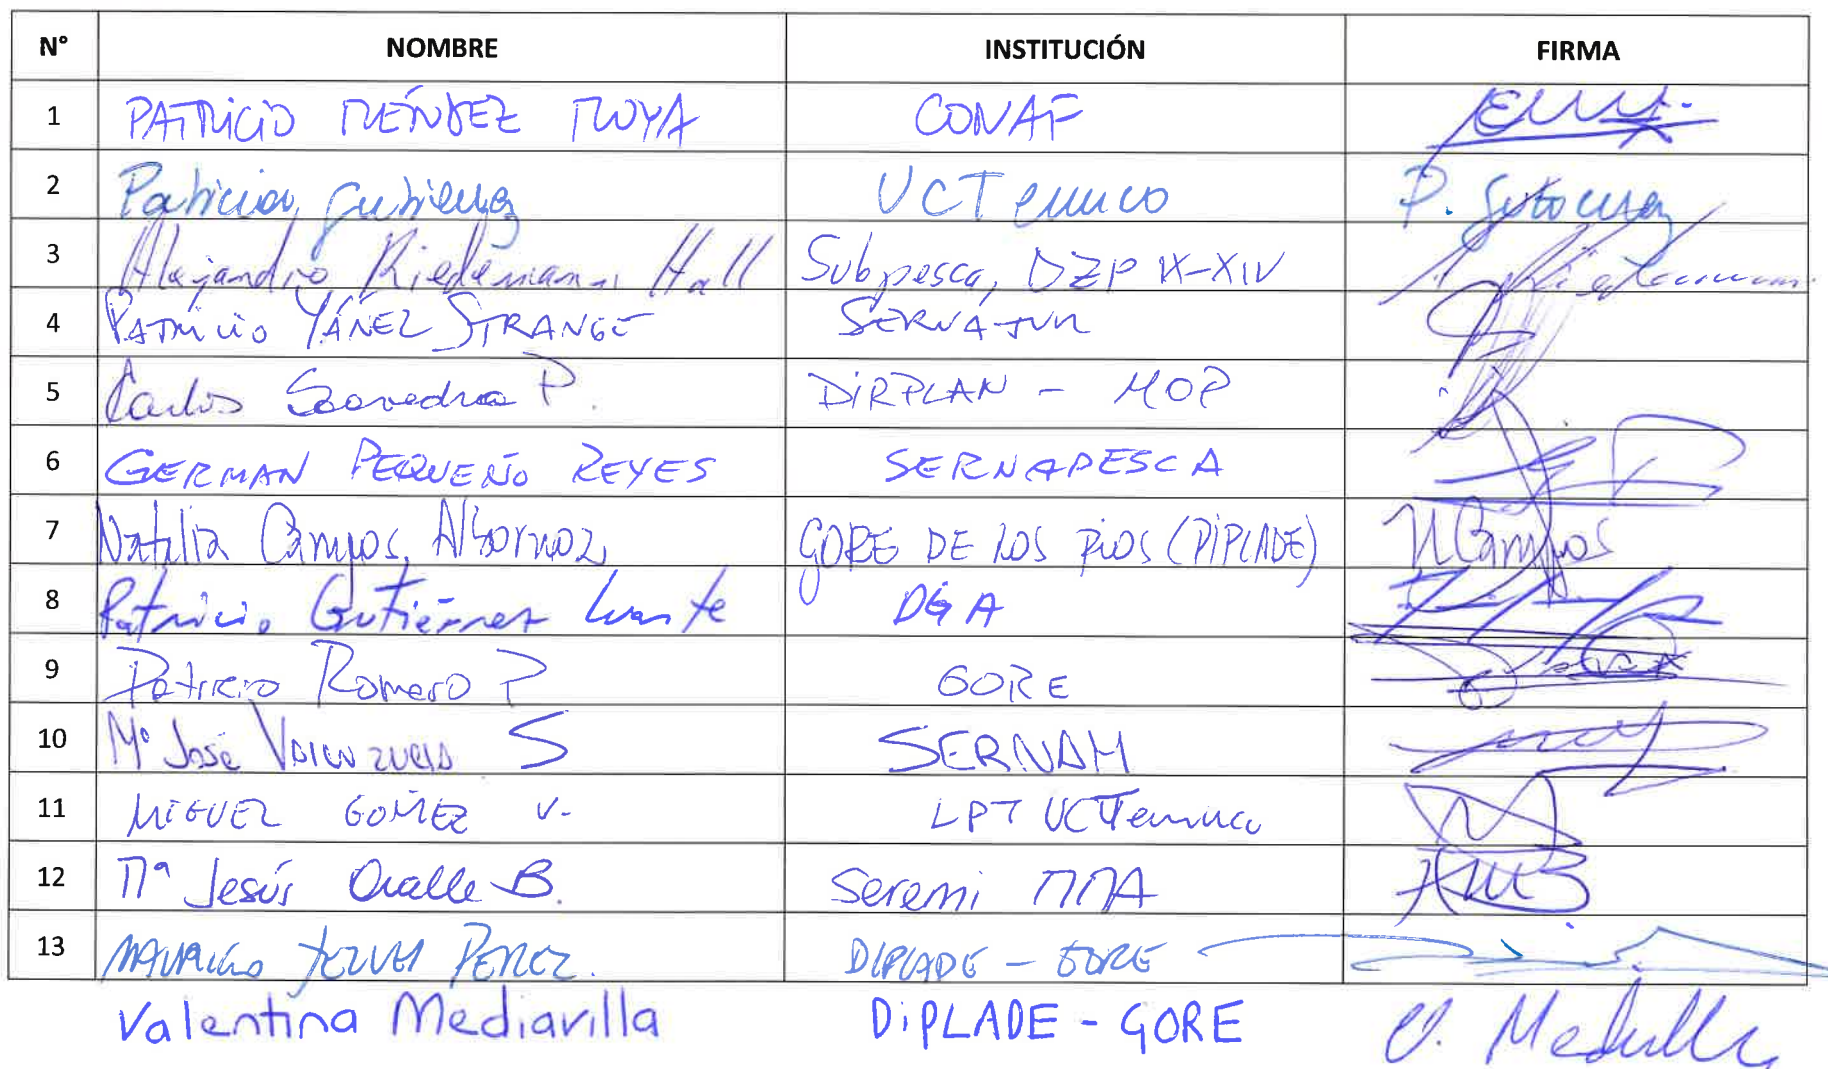 N° NOMBRE INSTITUCIÓN FIRMA
1 PATRICIO MÉNDEZ MOYA CONAF
2 Patricia Gutierrez UCTemuco P. Gutierrez
3 Alejandro Riedemann Hall Subpesca, DZP IX-XIV
4 PATRICIO YÁÑEZ STRANGE SERNATUR
5 Carlos Saavedra P. DIRPLAN - MOP
6 GERMAN PEQUEÑO REYES SERNAPESCA
7 Natalia Campos Albornoz GORE DE LOS RIOS (DIPLADE) N Campos
8 Patricio Gutiérrez DGA
9 Patricio Romero P GORE
10 Mª José Valenzuela S SERNAM
11 MIGUEL GOMEZ V. LPT UCTemuco
12 Mª Jesús Ovalle B. Seremi MMA
13 MAURICIO PEREZ. DIPLADE - GORE
Valentina Mediavilla DiPLADE - GORE V. Mediavilla